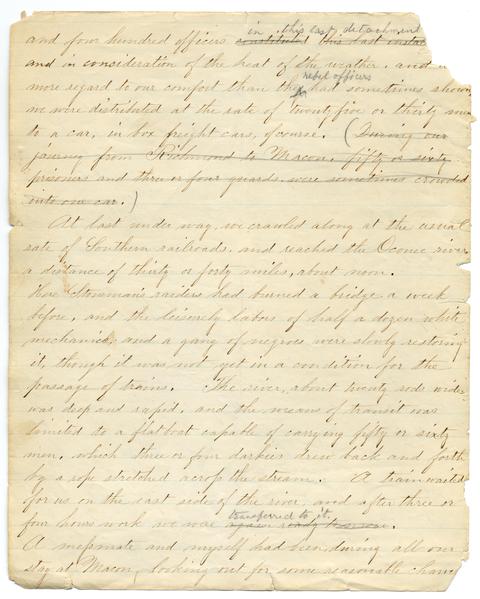 in this last detachment
and four hundred officers constituted this last
and in consideration of the heat of the weather, and
rebel officers
more regard to our comfort than they had sometimes shown
we were distributed at the rate of twenty five or thirty men
to a car, in box freight cars, of course. (During our
journey from Richmond to Macon, fifty or sixty
prisoners and three or four guards were sometimes crowded
into one car.)
At last under way, we crawled along at the usual
rate of Southern railroads, and reached the Oconee river
a distance of thirty or forty miles, about noon.
Here Stoneman's raiders had burned a bridge a week
before, and the leisurely labors of half a dozen white
mechanics and a gang of negroes were slowly restoring
it, though it was not yet in a condition for the
passage of trains. The river, about twenty rods wide,
was deep and rapid, and the means of transit was
limited to a flatboat capable of carrying fifty or sixty
men, which three or four darkies drew back and forth
by a rope stretched across the stream. A train waited
for us on the east side of the river, and after three or
transferred to it
four hours work we were again ready to .
A messmate and myself had been during all our
stay at Macon, looking out for some reasonable